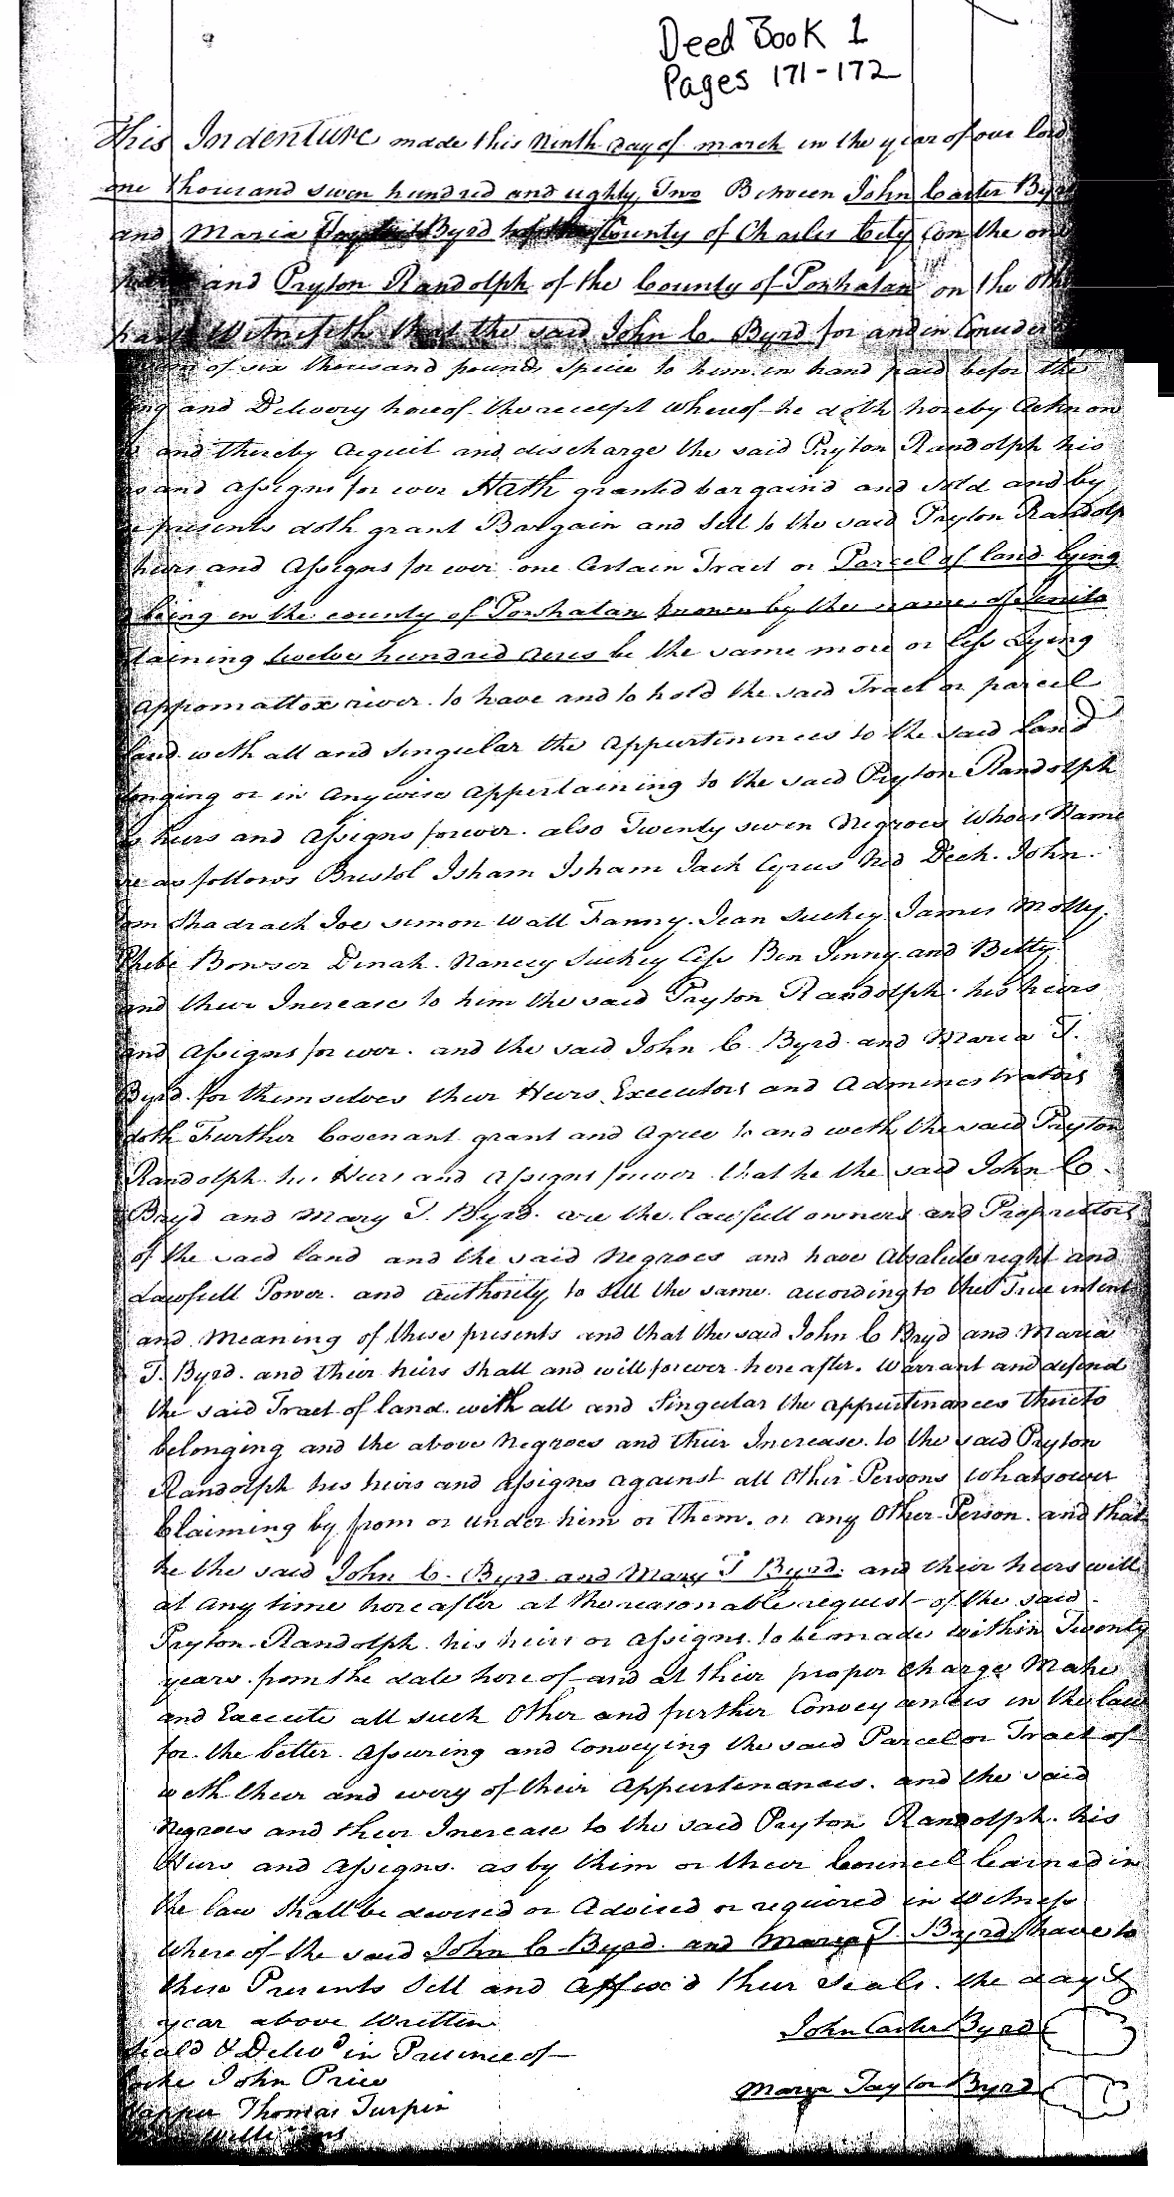 Deed Book 1
Pages 171-172
This Indenture made this Ninth day of march in the year of our lord
one thousand seven hundred and eighty Two Between John Carter Byrd
and Maria Byrd County of Charles City on the one
and Peyton Randolph of the County of Powhatan on the oth
part Witnesseth that the said John C. Byrd for and in Consider
of six thousand pounds specie to him in hand paid before the
ng and Delivery hereof the receipt whereof he doth hereby Acknow
and thereby acquit and discharge the said Peyton Randolph his
s and assigns for ever Hath granted bargain'd and sold and by
e presents doth grant Bargain and Sell to the said Peyton Randolp
heirs and Assigns for ever one Certain Tract or Parcel of land lying
being in the county of Powhatan known by the name of
taining twelve hundred acres be the same more or less Lying
Appomattox river to have and to hold the said Tract or parcel
land with all and singular the appurtinences to the said Land
onging or in Anywise Appertaining to the said Peyton Randolph
s heirs and Assigns forever. also Twenty seven Negroes Whoes Name
re as follows Bristol Isham Isham Jack Cyrus Ned Dick. John
om Shadrach Joe simon Wall Fanny. Jean Suckey James Molly.
Phebe Bowser Dinah. Nancey Suckey Ciss Ben Jinny and Betty
and their Increase to him the said Peyton Randolph his heirs
and Assigns for ever. and the said John C. Byrd and Maria T.
Byrd. for themselves their Heirs Executors and Administrators
doth Further Covenant grant and Agree to and with the said Peyton
Randolph his Heirs and Assigns forever that he the said John C.
Bryd and Mary T. Byrd. are the lawfull owners and Proprietors
of the said land and the said Negroes and have Absolute right and
Lawfull Power. and authority to Sell the same. according to the True intent
and Meaning of these presents and that the said John C Bryd and Maria
T. Byrd. and their heirs shall and will forever hereafter. Warrant and defend
the said Tract of land with all and Singular the appurtinances thereto
belonging and the above Negroes and their Increase. to the said Peyton
Randolph his heirs and assigns against all other Persons Whatsoever
Claiming by from or under him or them. or any Other Person. and that
he the said John C. Byrd and Mary T Byrd. and their heirs will
at any time hereafter at the reasonable request of the said
Peyton Randolph his heirs or assigns. to be made within Twenty
years from the date here of and at their proper charge Make
and Execute all such Other and further Conveyances in the law
for the better Assuring and Conveying the said Parcel or Tract of
with their and every of their Appurtenances. and the said
Negroes and their Increase to the said Peyton Randolph. his
Heirs and Assigns. as by him or their Councel learned in
the law shall be devised or Advised or required in Witness
where of the said John C Byrd. and T. Byrd have to
these Presents Sett and Affix'd their Seals. the day &
year above Written
Seald & Delivd in Presence of
John Price John Carter Byrd
Thomas Turpin Taylor Byrd